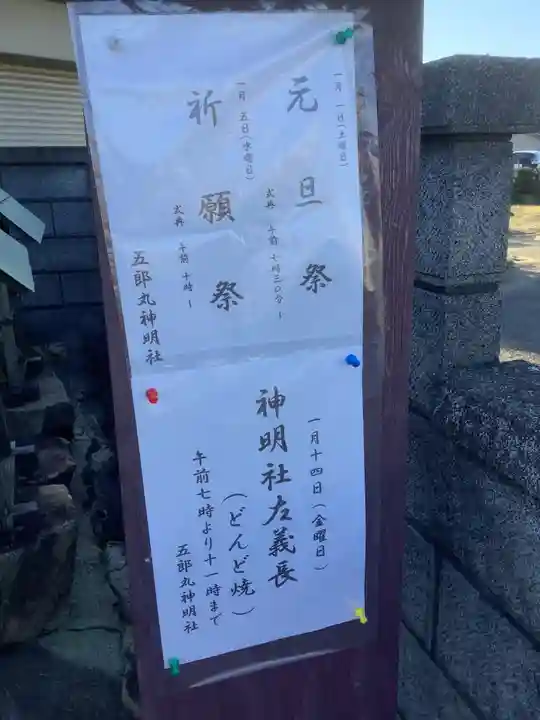 一月 一日(土曜日)
元旦祭
式典 午前 十時三〇分〜
一月 五日(水曜日)
祈願祭
式典 午前 十時〜
五郎丸神明社
一月十四日(金曜日)
神明社左義長
(どんど焼)
午前七時より十一時まで
五郎丸神明社